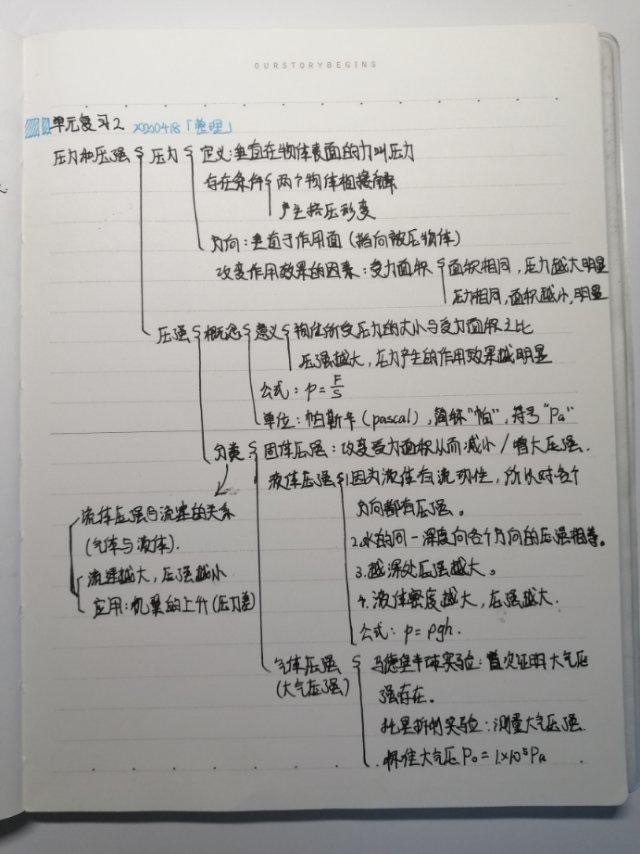 OURSTORYBEGINS
单元复习2 X200418「整理」
压力和压强 压力 定义:垂直在物体表面的力叫压力
存在条件 两个物体相接触
产生挤压形变
方向:垂直于作用面(指向被压物体)
改变作用效果的因素:受力面积 面积相同,压力越大明显
压力相同,面积越小,明显
压强 概念 意义 物体所受压力的大小与受力面积之比
压强越大,压力产生的作用效果越明显
公式:p=F/S
单位:帕斯卡(pascal),简称"帕",符号"Pa"
分类 固体压强:改变受力面积从而减小/增大压强.
液体压强 1.因为液体有流动性,所以对各个
方向都有压强。
2.水的同一深度向各个方向的压强相等。
3.越深处压强越大。
4.液体密度越大,压强越大.
公式:p=ρgh.
流体压强与流速的关系
(气体与液体).
流速越大,压强越小
应用:机翼的上升(压力差)
气体压强
(大气压强)
马德堡半球实验:首次证明大气压
强存在.
托里拆利实验:测量大气压强.
标准大气压P₀=1×10⁵Pa